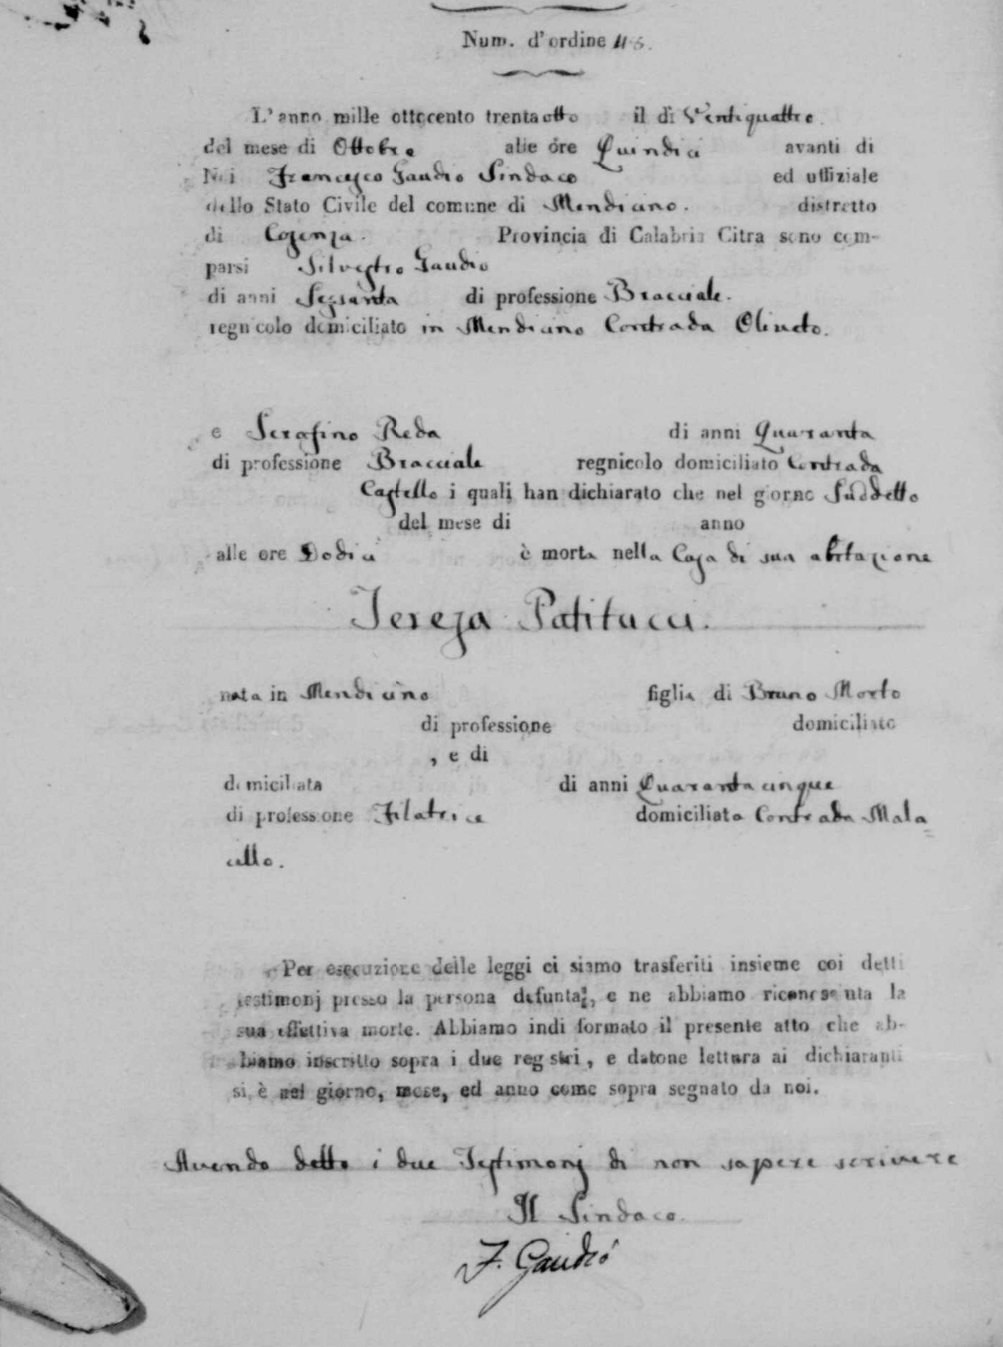 Num. d'ordine 45.
L'anno mille ottocento trentaotto il di Ventiquattro
del mese di Ottobre alle ore Quindici avanti di
Noi Francesco Gaudio Sindaco ed uffiziale
dello Stato Civile del comune di Mendicino. distretto
di Cosenza. Provincia di Calabria Citra sono com-
parsi Silvestro Gaudio
di anni Sessanta di professione Bracciale.
regnicolo domiciliato in Mendicino Contrada Oliveto.
e Serafino Reda di anni Quaranta
di professione Bracciale regnicolo domiciliato Contrada
Castello i quali han dichiarato che nel giorno Suddetto
del mese di anno
alle ore Dodici è morta nella Casa di sua abitazione
Tereza Patitucci.
nata in Mendicino figlia di Bruno Morto
di professione domiciliato
, e di
domiciliata di anni Quarantacinque
di professione Filatrice domiciliata Contrada Mala
cello.
Per esecuzione delle leggi ci siamo trasferiti insieme coi detti
testimonj presso la persona defunta, e ne abbiamo riconosciuta la
sua effettiva morte. Abbiamo indi formato il presente atto che ab-
biamo inscritto sopra i due registri, e datone lettura ai dichiaranti
si è nel giorno, mese, ed anno come sopra segnato da noi.
Avendo detto i due Testimonj di non sapere scrivere
Il Sindaco.
F. Gaudio